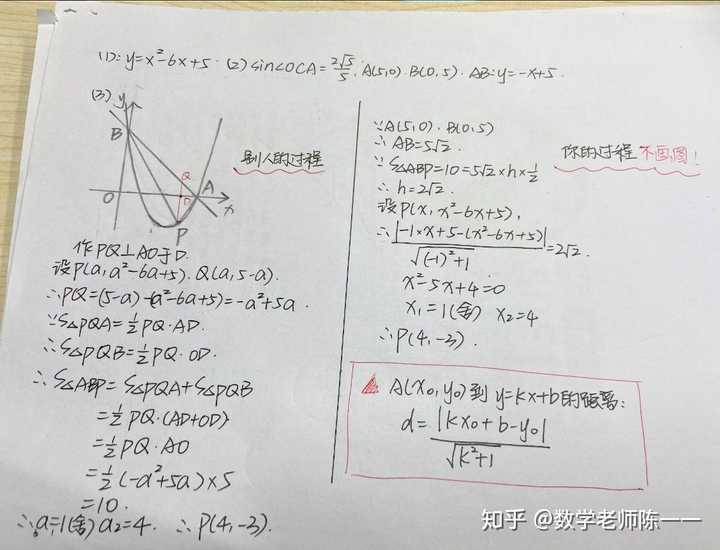 (1): y=x²-6x+5. (2) sin∠OCA=2√5/5. A(5,0). B(0,5). AB: y=-x+5.
(3)
y
B
O
Q
D
A
x
P
别人的过程
作PQ⊥AO于D.
设P(a,a²-6a+5). Q(a,5-a).
∴PQ=(5-a)-(a²-6a+5)=-a²+5a.
∵S△PQA=½PQ·AD.
∴S△PQB=½PQ·OD.
∴S△ABP=S△PQA+S△PQB
=½PQ·(AD+OD)
=½PQ·AO
=½(-a²+5a)×5
=10.
∴a₁=1(舍) a₂=4. ∴P(4,-3).
∵A(5,0). B(0,5)
∴AB=5√2.
∵S△ABP=10=5√2×h×½
∴h=2√2.
设P(x, x²-6x+5),
∴|-1×x+5-(x²-6x+5)|/√((-1)²+1)=2√2.
x²-5x+4=0
x₁=1(舍) x₂=4
∴P(4,-3).
你的过程 不画图!
A(x₀,y₀)到y=kx+b的距离:
d=|kx₀+b-y₀|/√(k²+1)
知乎 @数学老师陈一一